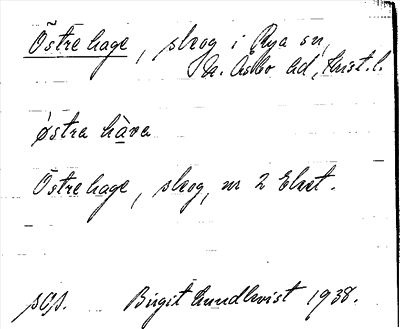 Östre hage, skog i Rya sn,
N. Åsbo hd, Krist. l.
østra hàva
Östre hage, skog, nr 2 Eket.
pop. Birgit Lundkvist 1938.